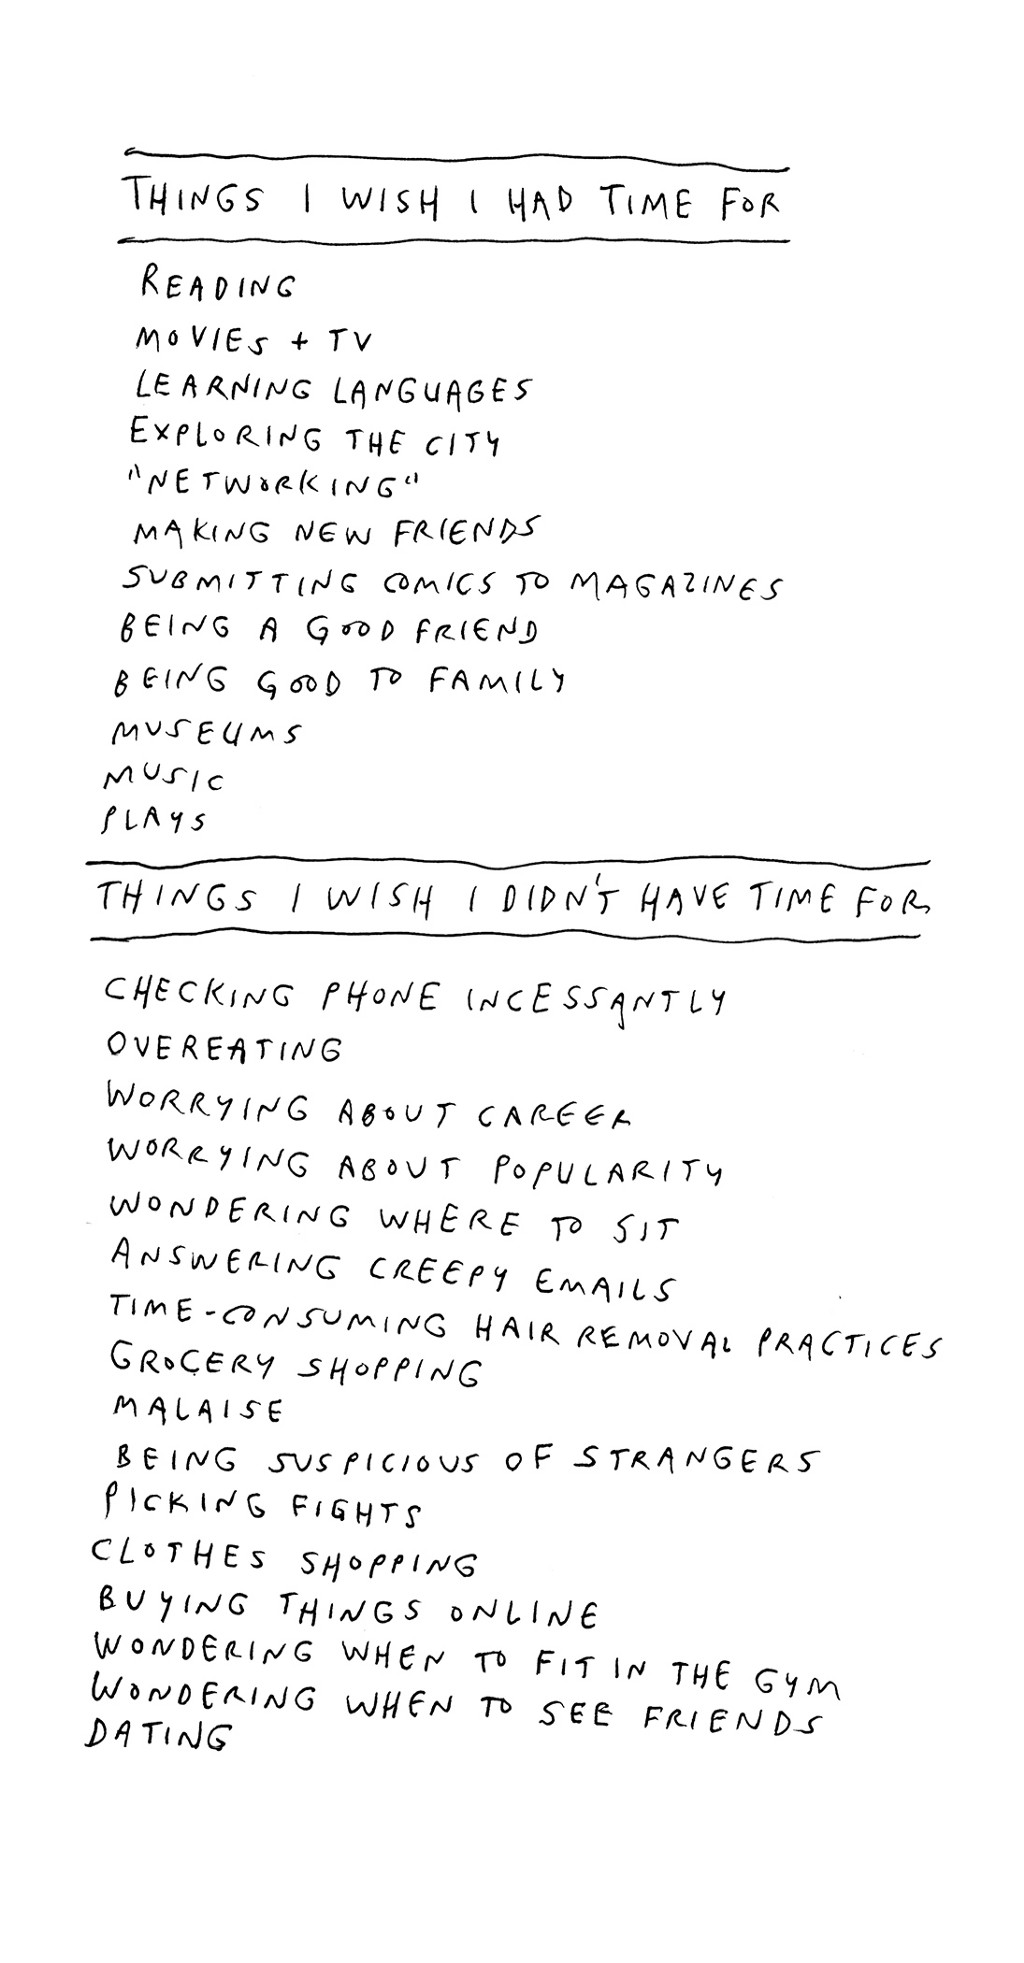 THINGS I WISH I HAD TIME FOR
READING
MOVIES + TV
LEARNING LANGUAGES
EXPLORING THE CITY
"NETWORKING"
MAKING NEW FRIENDS
SUBMITTING COMICS TO MAGAZINES
BEING A GOOD FRIEND
BEING GOOD TO FAMILY
MUSEUMS
MUSIC
PLAYS
THINGS I WISH I DIDN'T HAVE TIME FOR
CHECKING PHONE INCESSANTLY
OVEREATING
WORRYING ABOUT CAREER
WORRYING ABOUT POPULARITY
WONDERING WHERE TO SIT
ANSWERING CREEPY EMAILS
TIME-CONSUMING HAIR REMOVAL PRACTICES
GROCERY SHOPPING
MALAISE
BEING SUSPICIOUS OF STRANGERS
PICKING FIGHTS
CLOTHES SHOPPING
BUYING THINGS ONLINE
WONDERING WHEN TO FIT IN THE GYM
WONDERING WHEN TO SEE FRIENDS
DATING